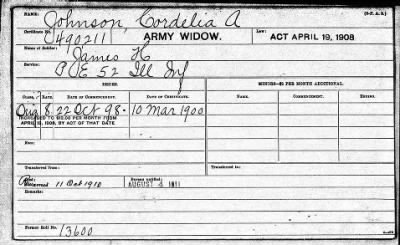 NAME: Johnson, Cordelia A
Certificate No. 490211 ARMY WIDOW. Law: ACT APRIL 19, 1908.
Name of Soldier: James H
Service: E 52 Ill Inf
ISSUES. MINORS—$2 PER MONTH ADDITIONAL.
CLASS. RATE. DATE OF COMMENCEMENT. DATE OF CERTIFICATE. NAME. COMMENCEMENT. ENDING.
8 22 Oct 98 - 10 Mar 1900
INCREASED TO $12.00 PER MONTH FROM
APRIL 19, 1908, BY ACT OF THAT DATE
Transferred from: Transferred to:
11 Oct 1910 AUGUST 4 1911
Remarks:
Former Roll No. 13600